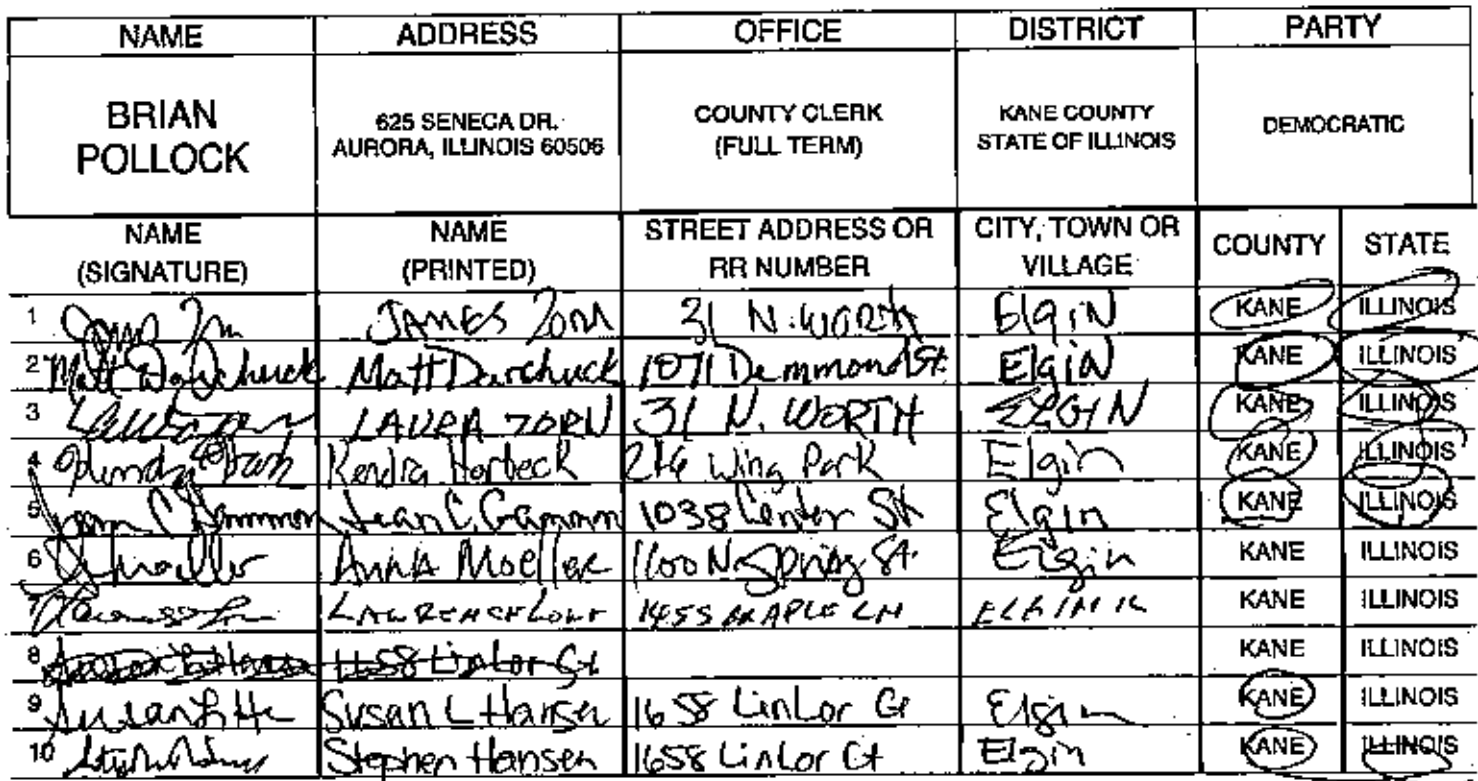 NAME ADDRESS OFFICE DISTRICT PARTY
BRIAN POLLOCK 625 SENECA DR. AURORA, ILLINOIS 60506 COUNTY CLERK (FULL TERM) KANE COUNTY STATE OF ILLINOIS DEMOCRATIC
NAME (SIGNATURE) NAME (PRINTED) STREET ADDRESS OR RR NUMBER CITY, TOWN OR VILLAGE COUNTY STATE
1 JAMES ZORN 31 N. WORTH ElgiN KANE ILLINOIS
2 Matt Darchuck Matt Darchuck 1071 Demmond St. ElgiN KANE ILLINOIS
3 LAURA ZORN 31 N. WORTH ELGIN KANE ILLINOIS
4 Kendra Horbeck Wing Park Elgin KANE ILLINOIS
5 Jean C. Gammon 1038 Center St Elgin KANE ILLINOIS
6 Anna Moeller 1600 N. Spring St. Elgin KANE ILLINOIS
7 LAWRENCE 1455 MAPLE LN ELGIN IL KANE ILLINOIS
8 1658 Linlor Ct KANE ILLINOIS
9 Susan L Hansen 1658 Linlor Ct Elgin KANE ILLINOIS
10 Stephen Hansen 1658 Linlor Ct Elgin KANE ILLINOIS